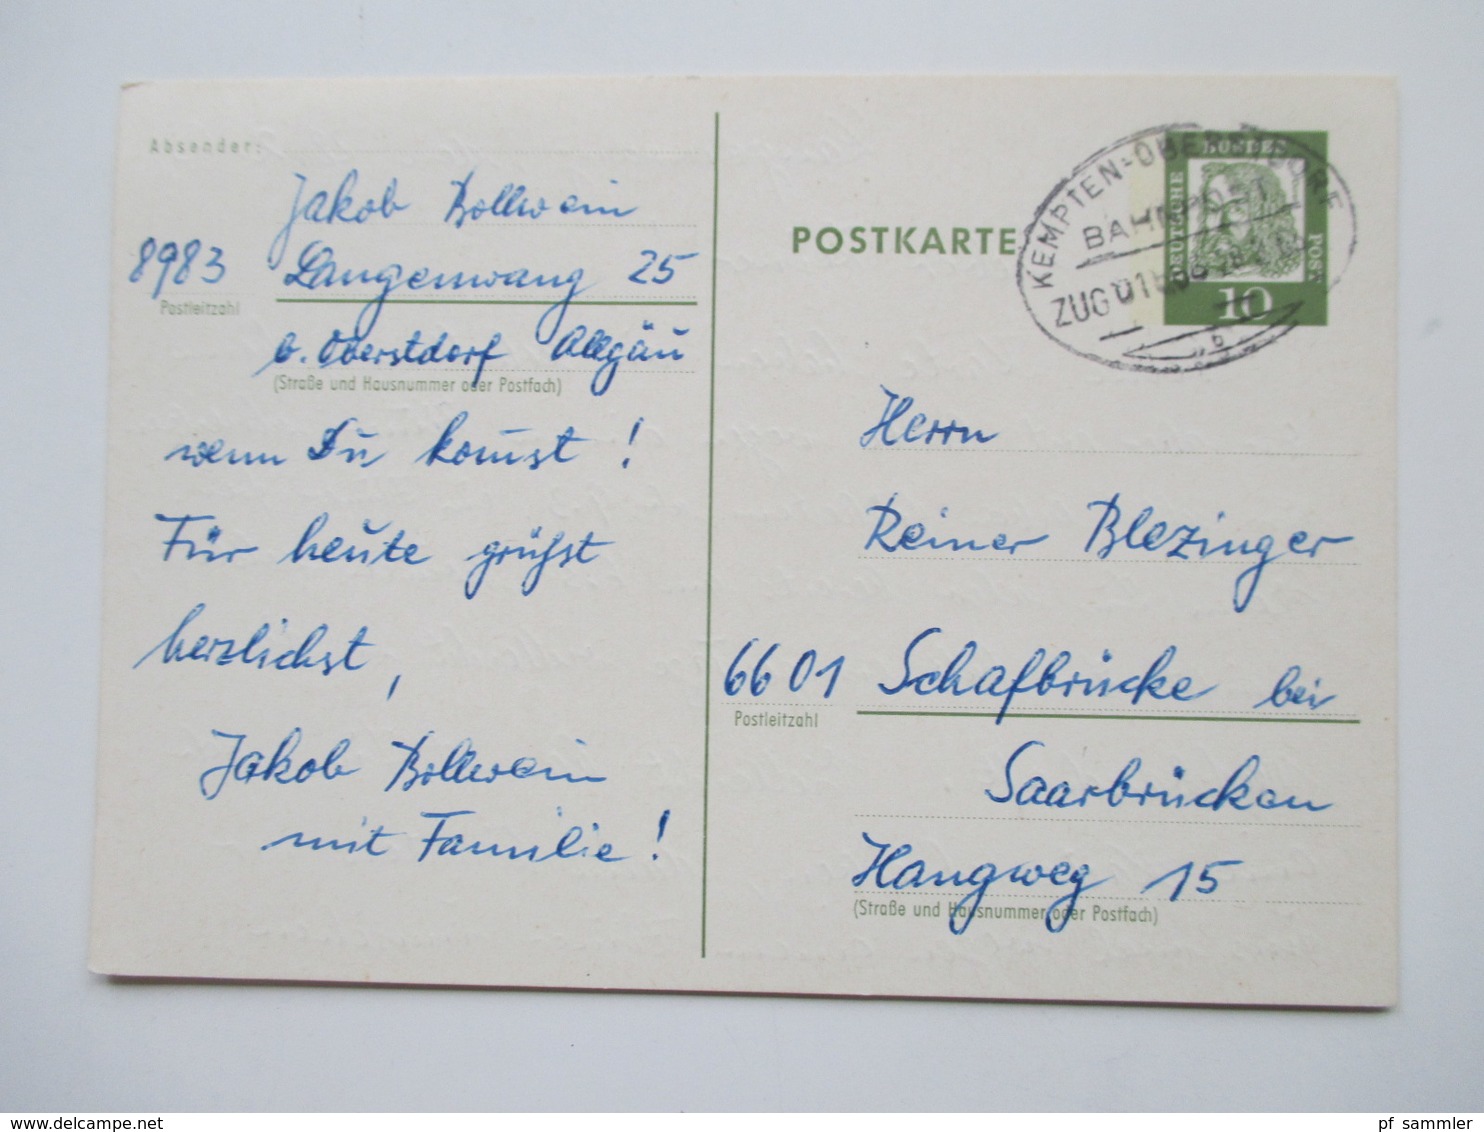 Absender:
Jakob Bollwein
8983 Langenwang 25
Postleitzahl
b. Oberstdorf Allgäu
(Straße und Hausnummer oder Postfach)
wenn Du komst!
Für heute grüßst
herzlichst,
Jakob Bollwein
mit Familie!
POSTKARTE
KEMPTEN-OBERSTDORF
BAHNPOST
ZUG
b
DEUTSCHE
BUNDES
POST
10
Herrn
Reiner Blezinger
6601 Schafbrücke bei
Postleitzahl
Saarbrücken
Hangweg 15
(Straße und Hausnummer oder Postfach)
pf_sammler